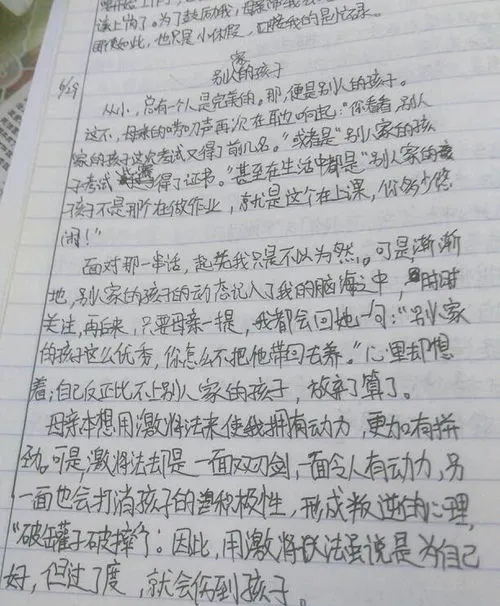 读上钩了。为了鼓励我，母亲带我去
即使如此，也只是小休假，迎接我的是忙碌。
别人家的孩子
6/29
从小，总有一个人是完美的。那，便是别人的孩子。
这不，母亲的唠叨声再次在耳边响起："你看看，别人
家的孩子这次考试又得了前几名。"或者是"别人家的孩
子考试得了证书。"甚至在生活中都是"别人家的孩
孩子不是那个在做作业，就是这个在上课，你多少悠
闲！"
面对那一串话，起先我只是不以为然。可是，渐渐
地，别人家的孩子的动态记入了我的脑海之中，时时
关注，再后来，只要母亲一提，我都会回她一句："别人家
的孩子这么优秀，你怎么不把他带回去养。"心里却想
着；自己反正比不上别人家的孩子，放弃了算了。
母亲本想用激将法来使我拥有动力，更加有拼
劲。可是，激将法却是一面双刃剑，一面令人有动力，另
一面也会打消孩子的积极性，形成叛逆的心理，
"破缸罐子破摔了：因此，用激将法虽说是为自己
好，但过了度，就会伤到孩子。